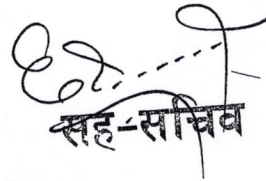 सह-सचिव